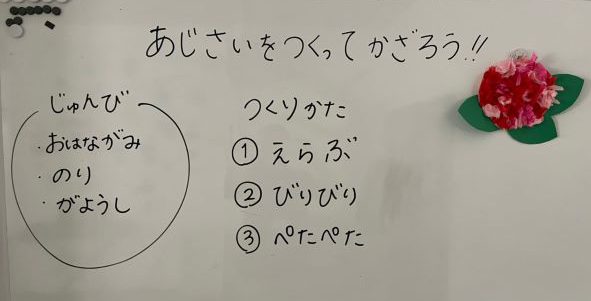 あじさいをつくってかざろう!!
じゅんび
・おはながみ
・のり
・がようし
つくりかた
① えらぶ
② びりびり
③ ぺたぺた